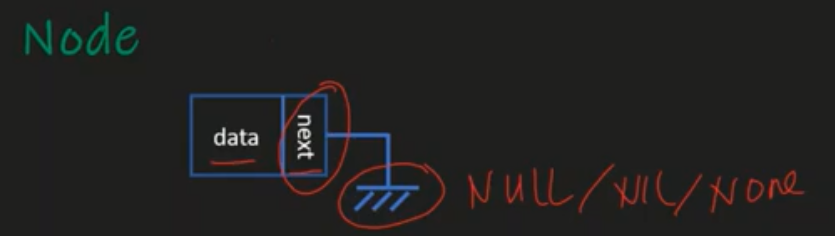 Node
data next
NULL/NIL/None